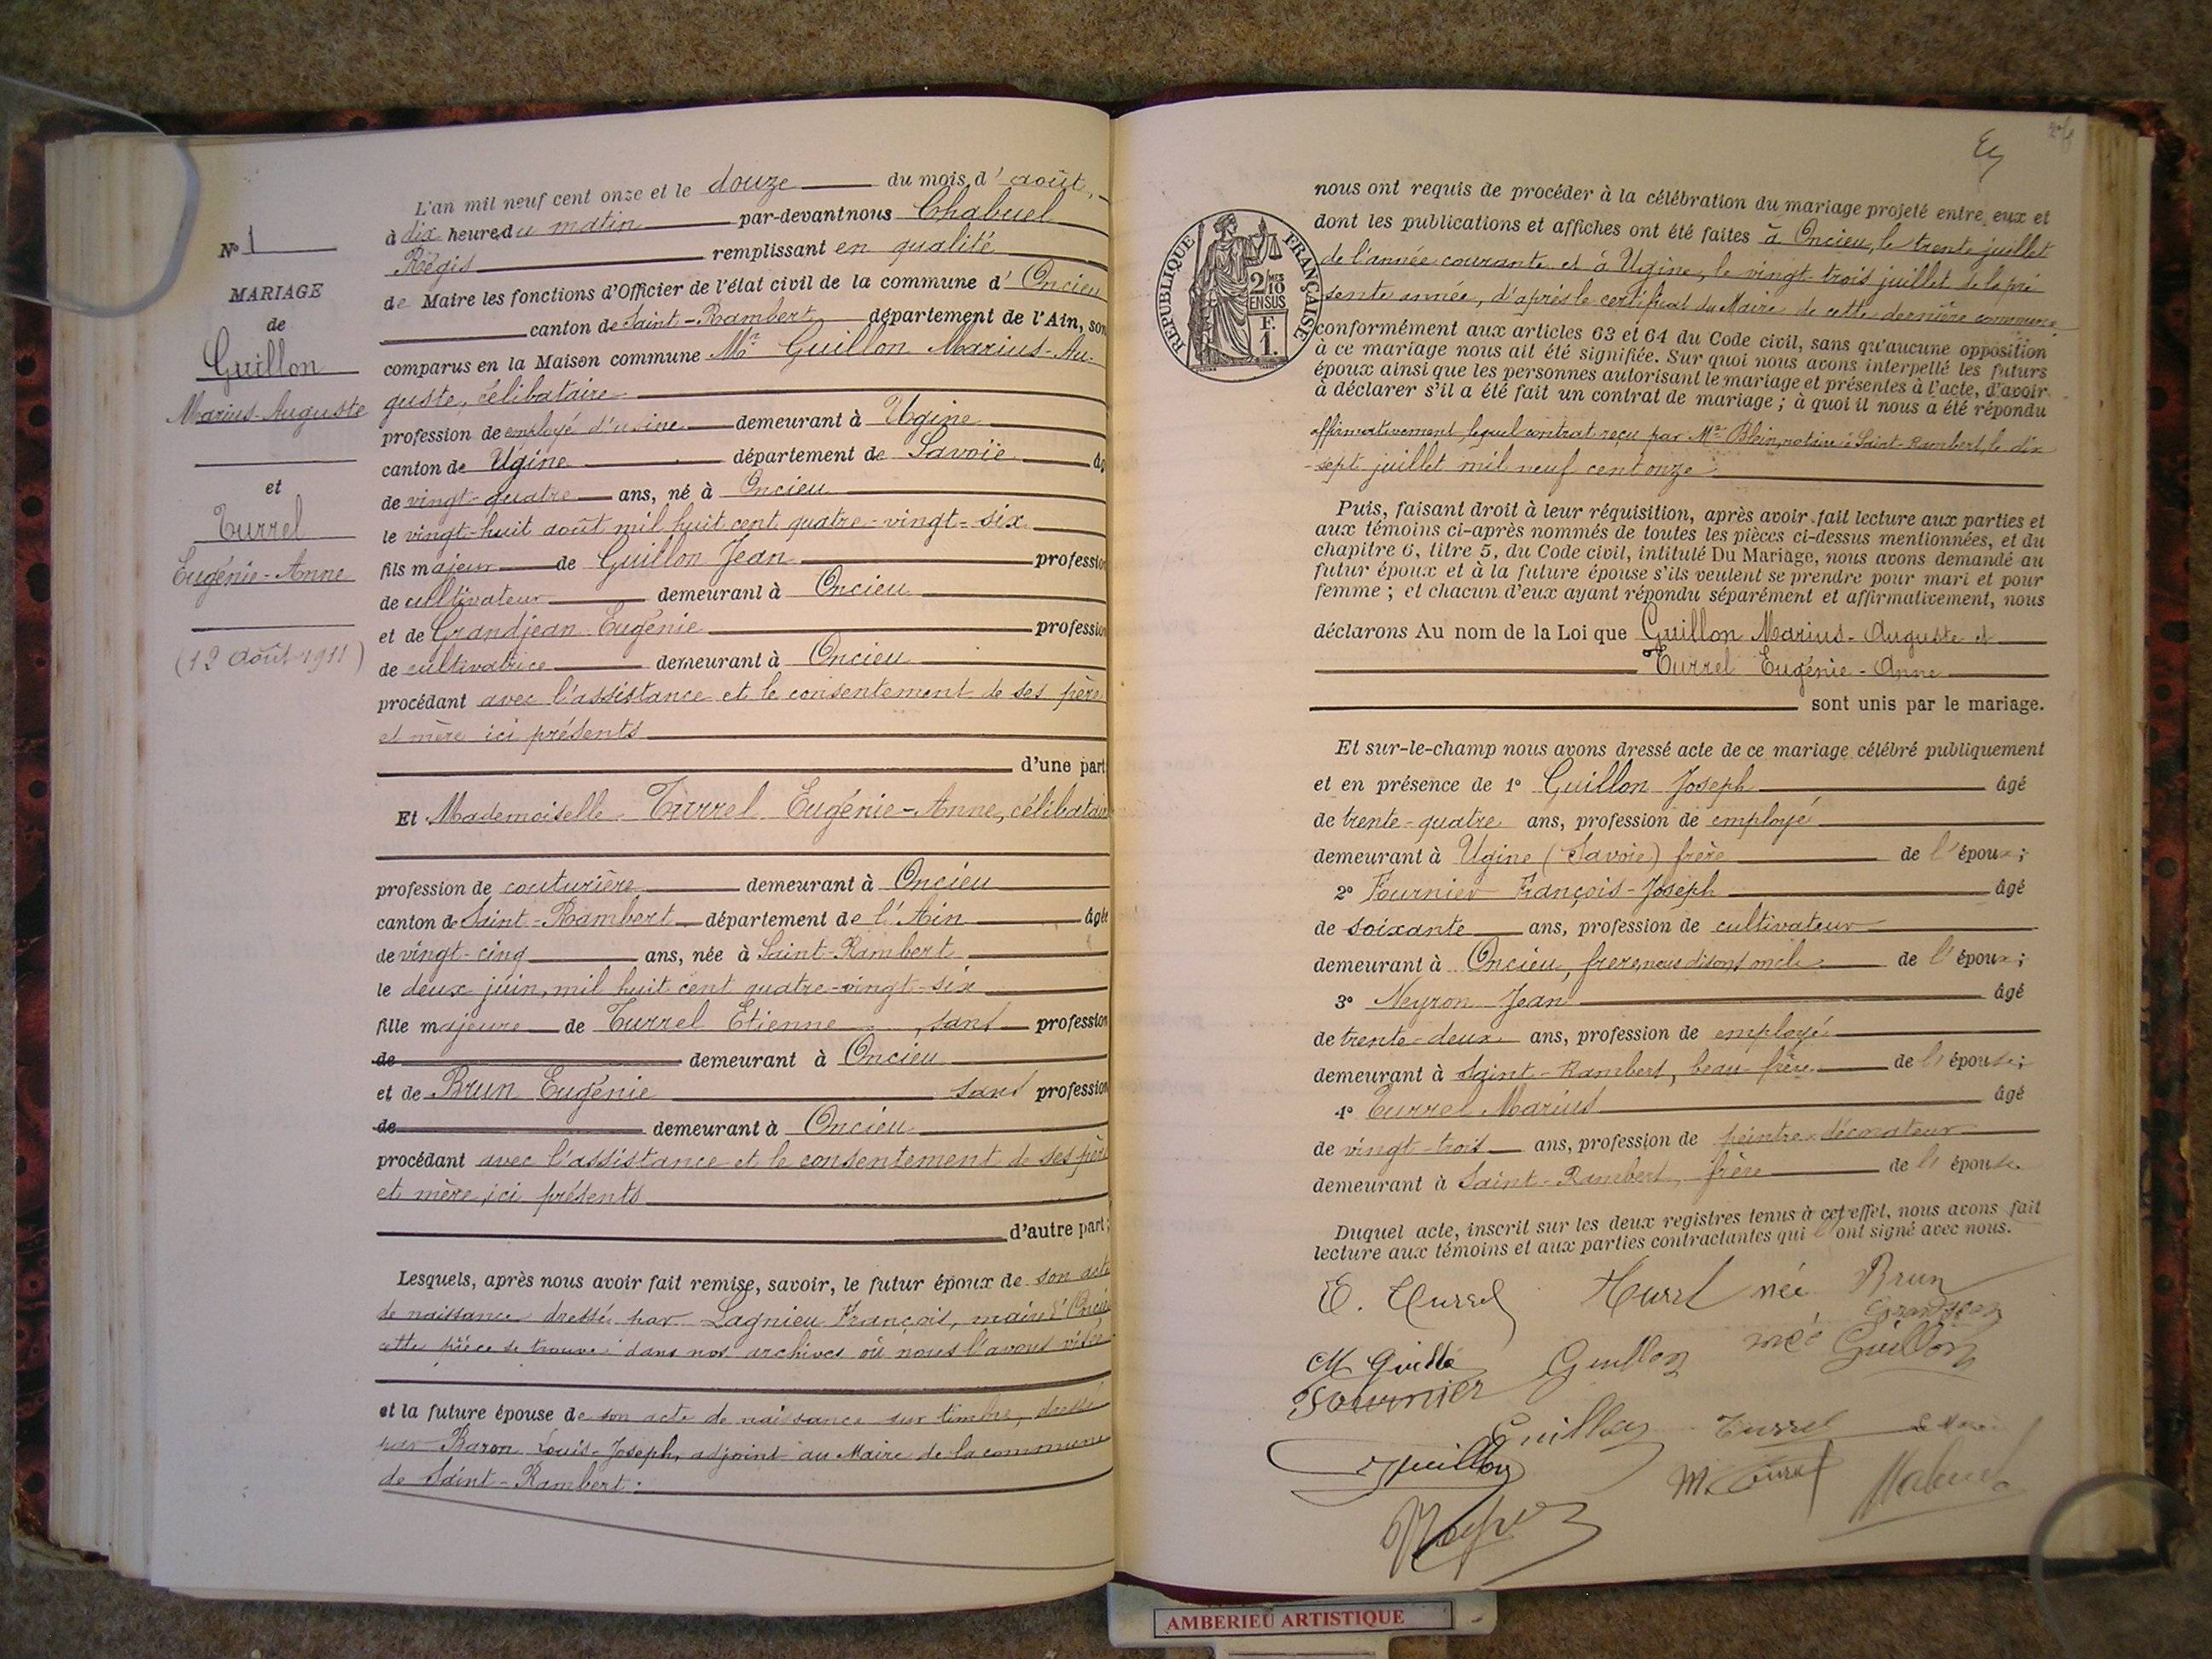 N° 1
MARIAGE
de
Guillon
Marius-Auguste
et
Turrel
Eugénie-Anne
(12 Août 1911)
L'an mil neuf cent onze et le douze du mois d'août,
à dix heures du matin par-devant nous Chabuel
Régis remplissant en qualité
de Maire les fonctions d'Officier de l'état civil de la commune d'Oncieu
canton de Saint-Rambert département de l'Ain, son
comparus en la Maison commune Mr Guillon Marius-Au-
guste, célibataire
profession de employé d'usine demeurant à Ugine
canton de Ugine département de Savoie
de vingt-quatre ans, né à Oncieu
le vingt-huit août mil huit cent quatre-vingt-six
fils majeur de Guillon Jean profession
de cultivateur demeurant à Oncieu
et de Grandjean Eugénie profession
de cultivatrice demeurant à Oncieu
procédant avec l'assistance et le consentement de ses père
et mère ici présents
d'une part
Et Mademoiselle Turrel Eugénie-Anne, célibataire
profession de couturière demeurant à Oncieu
canton de Saint-Rambert département de l'Ain âgée
de vingt-cinq ans, née à Saint-Rambert
le deux juin, mil huit cent quatre-vingt-six
fille majeure de Turrel Etienne, sans profession
de demeurant à Oncieu
et de Brun Eugénie sans profession
de demeurant à Oncieu
procédant avec l'assistance et le consentement de ses père
et mère, ici présents
d'autre part;
Lesquels, après nous avoir fait remise, savoir, le futur époux de son acte
de naissance dressé par Lagnieu François, maire d'Oncieu
cette pièce se trouve dans nos archives où nous l'avons visée
et la future épouse de son acte de naissance sur timbre, dressé
par Baron Louis-Joseph, adjoint au Maire de la commune
de Saint-Rambert.
RÉPUBLIQUE FRANÇAISE
2/10 EN SUS
F.
1.
nous ont requis de procéder à la célébration du mariage projeté entre eux et
dont les publications et affiches ont été faites à Oncieu, le trente juillet
de l'année courante et à Ugine, le vingt-trois juillet de la pré
sente année, d'après le certificat du Maire de cette dernière commune
conformément aux articles 63 et 64 du Code civil, sans qu'aucune opposition
à ce mariage nous ait été signifiée. Sur quoi nous avons interpellé les futurs
époux ainsi que les personnes autorisant le mariage et présentes à l'acte, d'avoir
à déclarer s'il a été fait un contrat de mariage ; à quoi il nous a été répondu
affirmativement lequel contrat reçu par Me Blein, notaire à Saint-Rambert, le dix
-sept juillet mil neuf cent onze.
Puis, faisant droit à leur réquisition, après avoir fait lecture aux parties et
aux témoins ci-après nommés de toutes les pièces ci-dessus mentionnées, et du
chapitre 6, titre 5, du Code civil, intitulé Du Mariage, nous avons demandé au
futur époux et à la future épouse s'ils veulent se prendre pour mari et pour
femme ; et chacun d'eux ayant répondu séparément et affirmativement, nous
déclarons Au nom de la Loi que Guillon Marius-Auguste et
Turrel Eugénie-Anne
sont unis par le mariage.
Et sur-le-champ nous avons dressé acte de ce mariage célébré publiquement
et en présence de 1° Guillon Joseph âgé
de trente-quatre ans, profession de employé
demeurant à Ugine (Savoie) frère de l'époux;
2° Fournier François-Joseph âgé
de soixante ans, profession de cultivateur
demeurant à Oncieu, frère, nous disons oncle de l'époux;
3° Neyron Jean âgé
de trente-deux ans, profession de employé
demeurant à Saint-Rambert, beau-frère de l'épouse;
4° Turrel Marius âgé
de vingt-trois ans, profession de peintre-décorateur
demeurant à Saint-Rambert, frère de l'épouse
Duquel acte, inscrit sur les deux registres tenus à cet effet, nous avons fait
lecture aux témoins et aux parties contractantes qui l'ont signé avec nous.
E. Turrel Turrel née Brun
Grandjean
M Guillon Guillon née Guillon
Fournier
Guillon Turrel
Guillon M Turrel Chabuel
AMBERIEU ARTISTIQUE